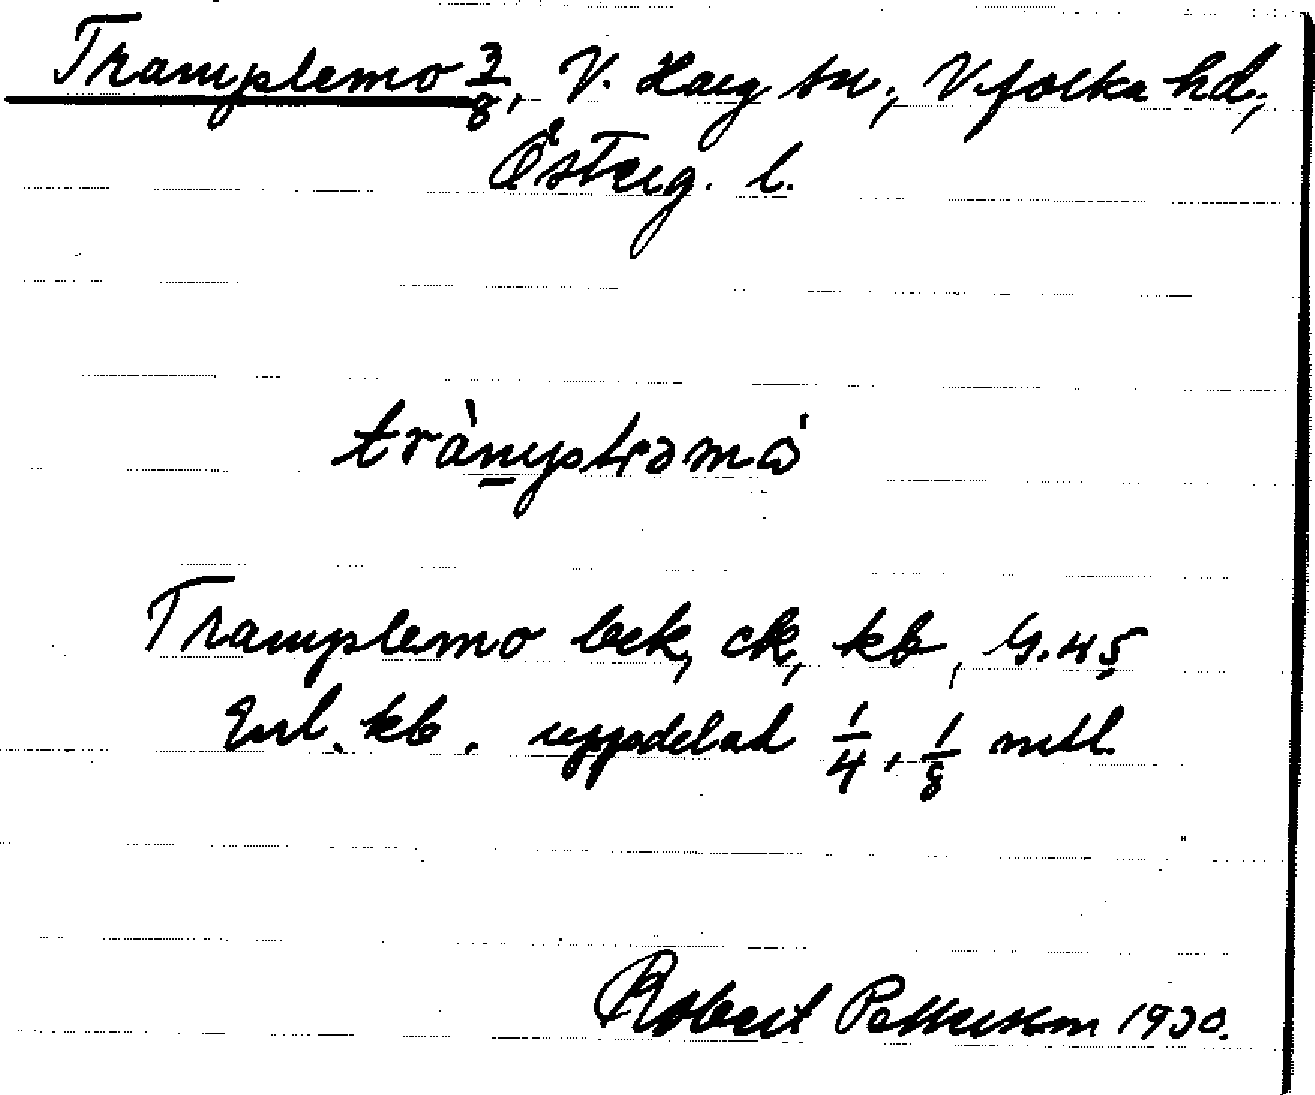 Tramplemo 3/8, V. Harg sn, V.folka hd,
Österg. l.
Tramplemo bek, ck, kb, G.45
Enl. kb. uppdelad 1/4, 1/8 mtl.
Robert Pettersson 1930.